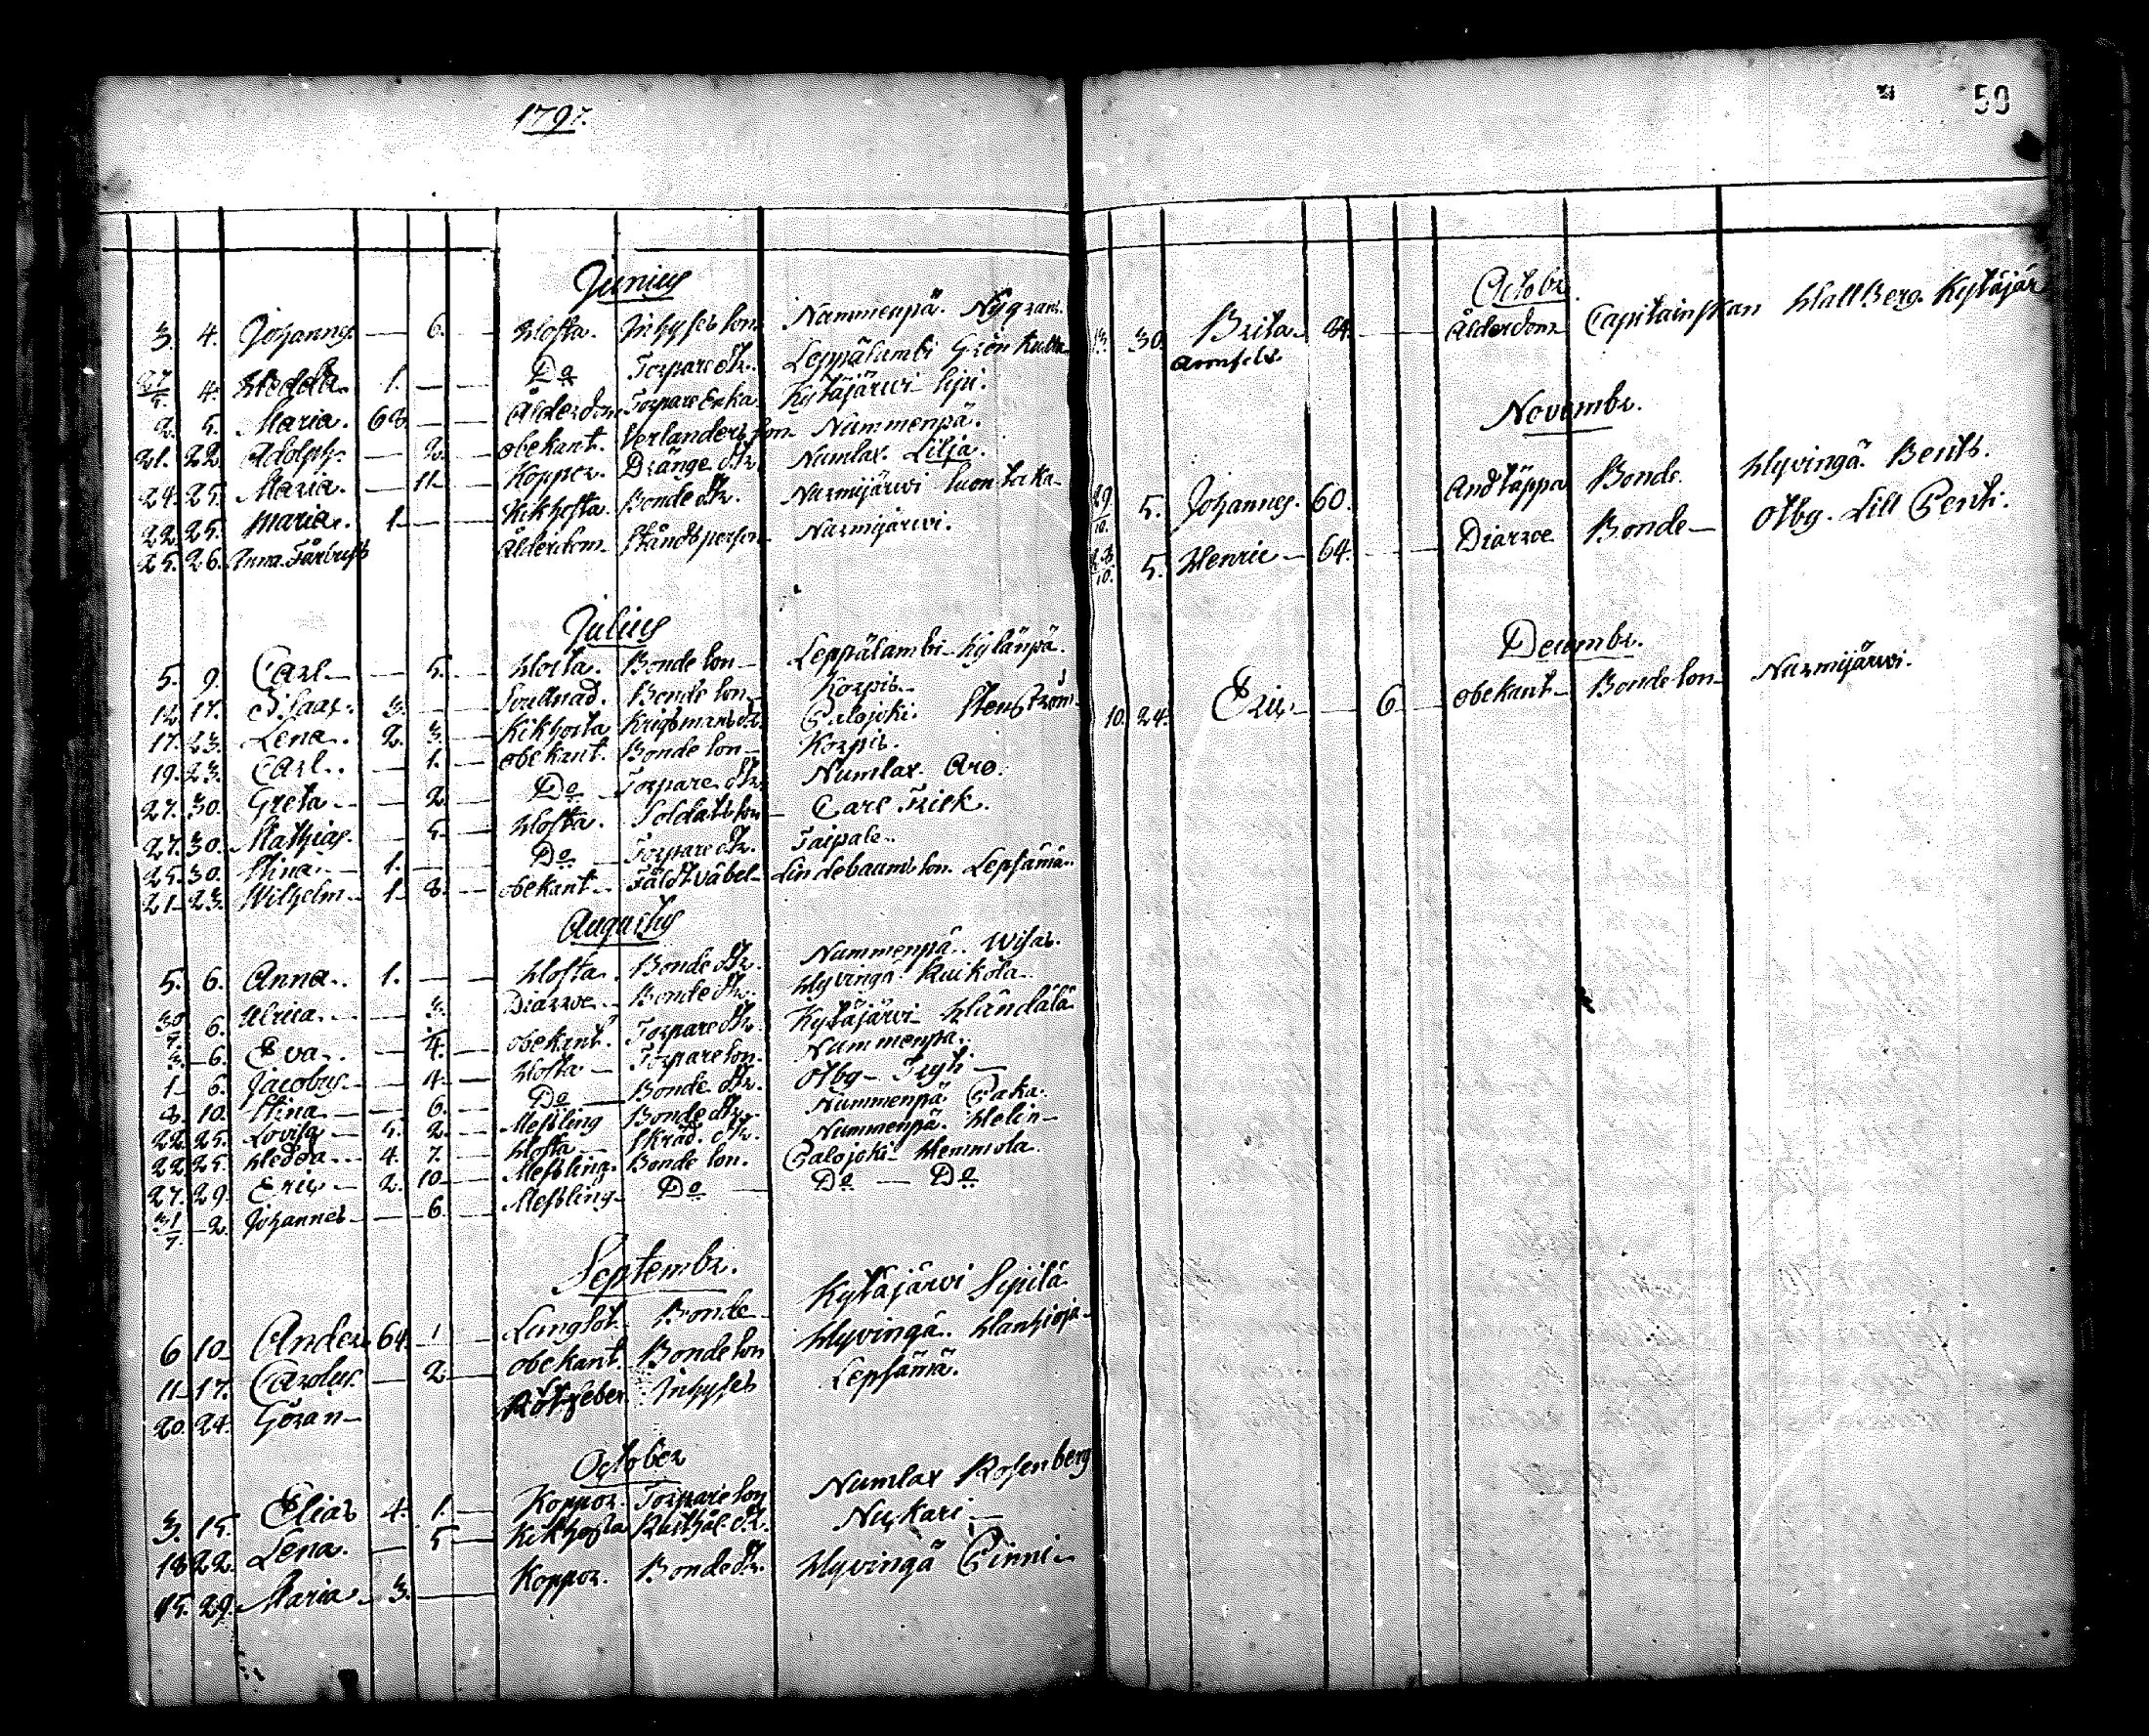 1797.
Junius
3. 4. Johannes — 6. — Hosta. Inhyses son Nummenpä. Nygrans.
27/5. 4. Hedda. 1. — — Do Torpare dtr. Leppälambi Grönkulla
2. 5. Maria. 63. — — Ålderdom Torpare Enka Kytäjärvi
21. 22. Adolph. — 2. — obekant. Verlanders son Nummenpä.
24. 25. Maria. — 11. — Koppor. Dränge dtr. Numlax. Lilja.
22. 25. Maria. 1. — — Kikhosta. Bonde dtr. Nurmijärvi Luontaka
25. 26. Anna. Ålderdom Ståndsperson Nurmijärvi.
Julius
5. 9. Carl — — 5. — Hosta. Bonde son — Leppälambi Kylänpä.
12. 17. Isaac. 3. — — Bonde son — Korpis.
17. 23. Lena. 2. 3. — Kikhosta Krigsmans dtr. Palojoki. Stenström
19. 23. Carl. — 1. — obekant. Bonde son — Korpis.
27. 30. Greta — — 2. — Do Torpare dtr. Numlax. Aro.
27. 30. Mathias. — 5. — Hosta. Soldats son — Carl Frisk.
25. 30. Stina. — 1. — Do — Torpare dtr. Taipale.
21. 23. Wilhelm — 1. 8. — obekant — Fältväbel — Lindebaums son. Lepsämä.
Augustus
5. 6. Anna. 1. — — Hosta. Bonde dtr. Nummenpä. Wisas.
30/7. 6. Ulrica. — 3. Diarroe. Bonde dtr. Hyvingä. Ruikola.
3. 6. Eva. — 4. — obekant. Torpare dtr. Kytäjärvi Händälä
1. 6. Jacobus — — 4. — Hosta — Torpare son. Nummenpä.
8. 10. Stina — — 6. — Do — Bonde dtr. Otbg —
22. 25. Lovisa — 5. 2. — Messling Bonde dtr. Nummenpä Paka.
22. 25. Hedda — 4. 7. — Hosta — Skräd. dtr. Nummenpä. Helin —
27. 29. Eric — 2. 10. — Messling. Bonde son. Palojoki Hemmola.
31/7. 2. Johannes — — 6. — Messling — Do — Do — Do
Septembr.
6 10. Anders 64. 1. — Lungsot. Bonde — Kytäjärvi Sipilä
11. 17. Carolus. — 2. — obekant. Bonde son Hyvingä. Hanhioja
20. 24. Göran — Rötfeber Inhyses Lepsämä.
October
3. 15. Elias 4. 1. — Koppor. Torpare son Numlax Rosenberg
18. 22. Lena. — 5. — Kikhosta Rusthål. dtr. Nuckari —
15. 29. Maria. 3. — — Koppor. Bonde dtr. Hyvingä Pinni —
50
Octobr.
13. 30. Brita 84. — — Ålderdom Capitainskan Hallberg. Kytäjär
Armfelt
Novembr.
29/10. 5. Johannes. 60. Andtäppa Bonde. Hyvingä. Bents.
28/10. 5. Henric — 64. — — Diarroe Bonde — Otbg. Lill Pentti.
Decembr.
10. 24. Eric — — 6 — obekant — Bonde son — Nurmijärvi.